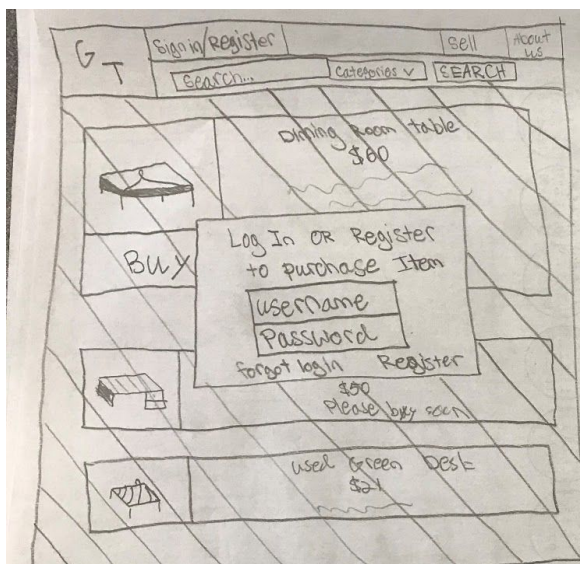 G T
Sign in/Register
Sell
About us
Search...
Categories ∨
SEARCH
Dining Room table
$60
Buy
Log In OR Register
to purchase Item
username
Password
forgot login Register
$50
Please buy soon
used Green Desk
$21